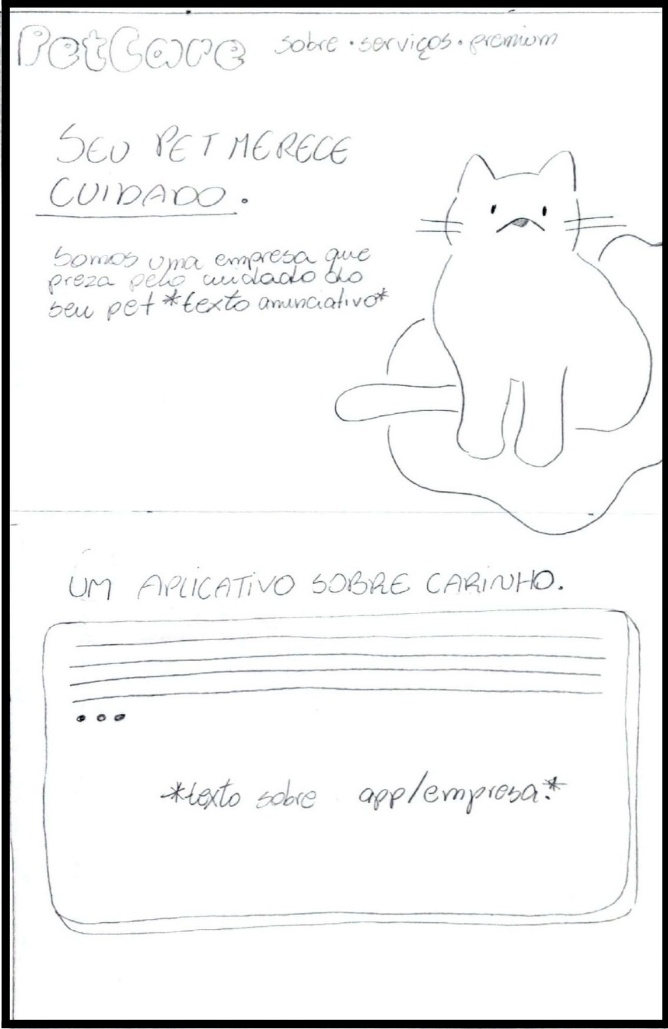 PetCare sobre • serviços • premium
SEU PET MERECE
CUIDADO.
Somos uma empresa que
preza pelo cuidado do
seu pet *texto anunciativo*
UM APLICATIVO SOBRE CARINHO.
*texto sobre app/empresa.*